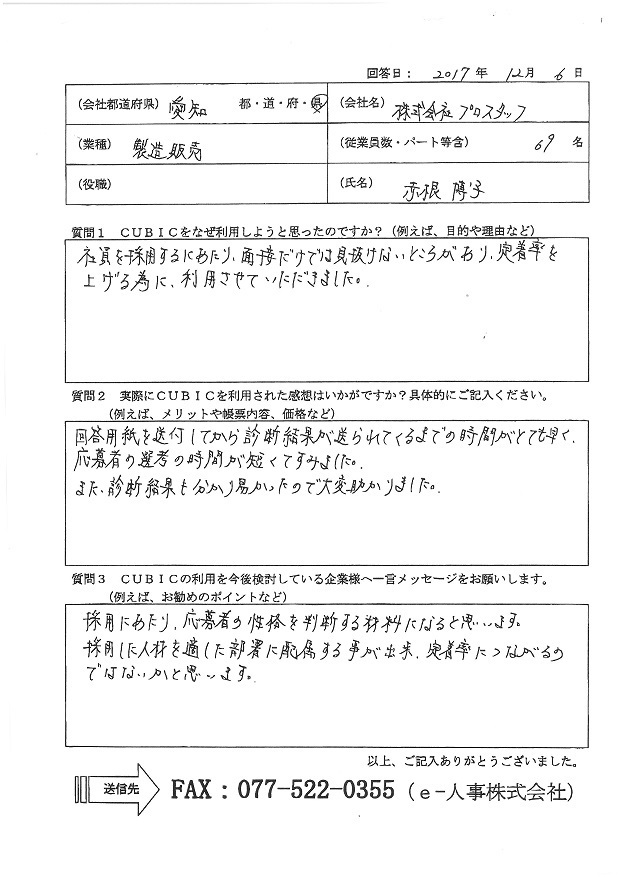 回答日： 2017 年 12月 6 日
（会社都道府県） 愛知 都・道・府・県 （会社名） 株式会社プロスタッフ
（業種） 製造販売 （従業員数・パート等含） 69 名
（役職） （氏名） 赤根 博子
質問１ ＣＵＢＩＣをなぜ利用しようと思ったのですか？（例えば、目的や理由など）
社員を採用するにあたり、面接だけでは見抜けないところがあり、定着率を
上げる為に、利用させていただきました。
質問２ 実際にＣＵＢＩＣを利用された感想はいかがですか？具体的にご記入ください。
（例えば、メリットや帳票内容、価格など）
回答用紙を送付してから診断結果が送られてくるまでの時間がとても早く、
応募者の選考の時間が短くてすみました。
また、診断結果も分かり易かったので大変助かりました。
質問３ ＣＵＢＩＣの利用を今後検討している企業様へ一言メッセージをお願いします。
（例えば、お勧めのポイントなど）
採用にあたり、応募者の性格を判断する材料になると思います。
採用した人材を適した部署に配属する事が出来、定着率につながるの
ではないかと思います。
以上、ご記入ありがとうございました。
送信先 FAX：077-522-0355（e-人事株式会社）